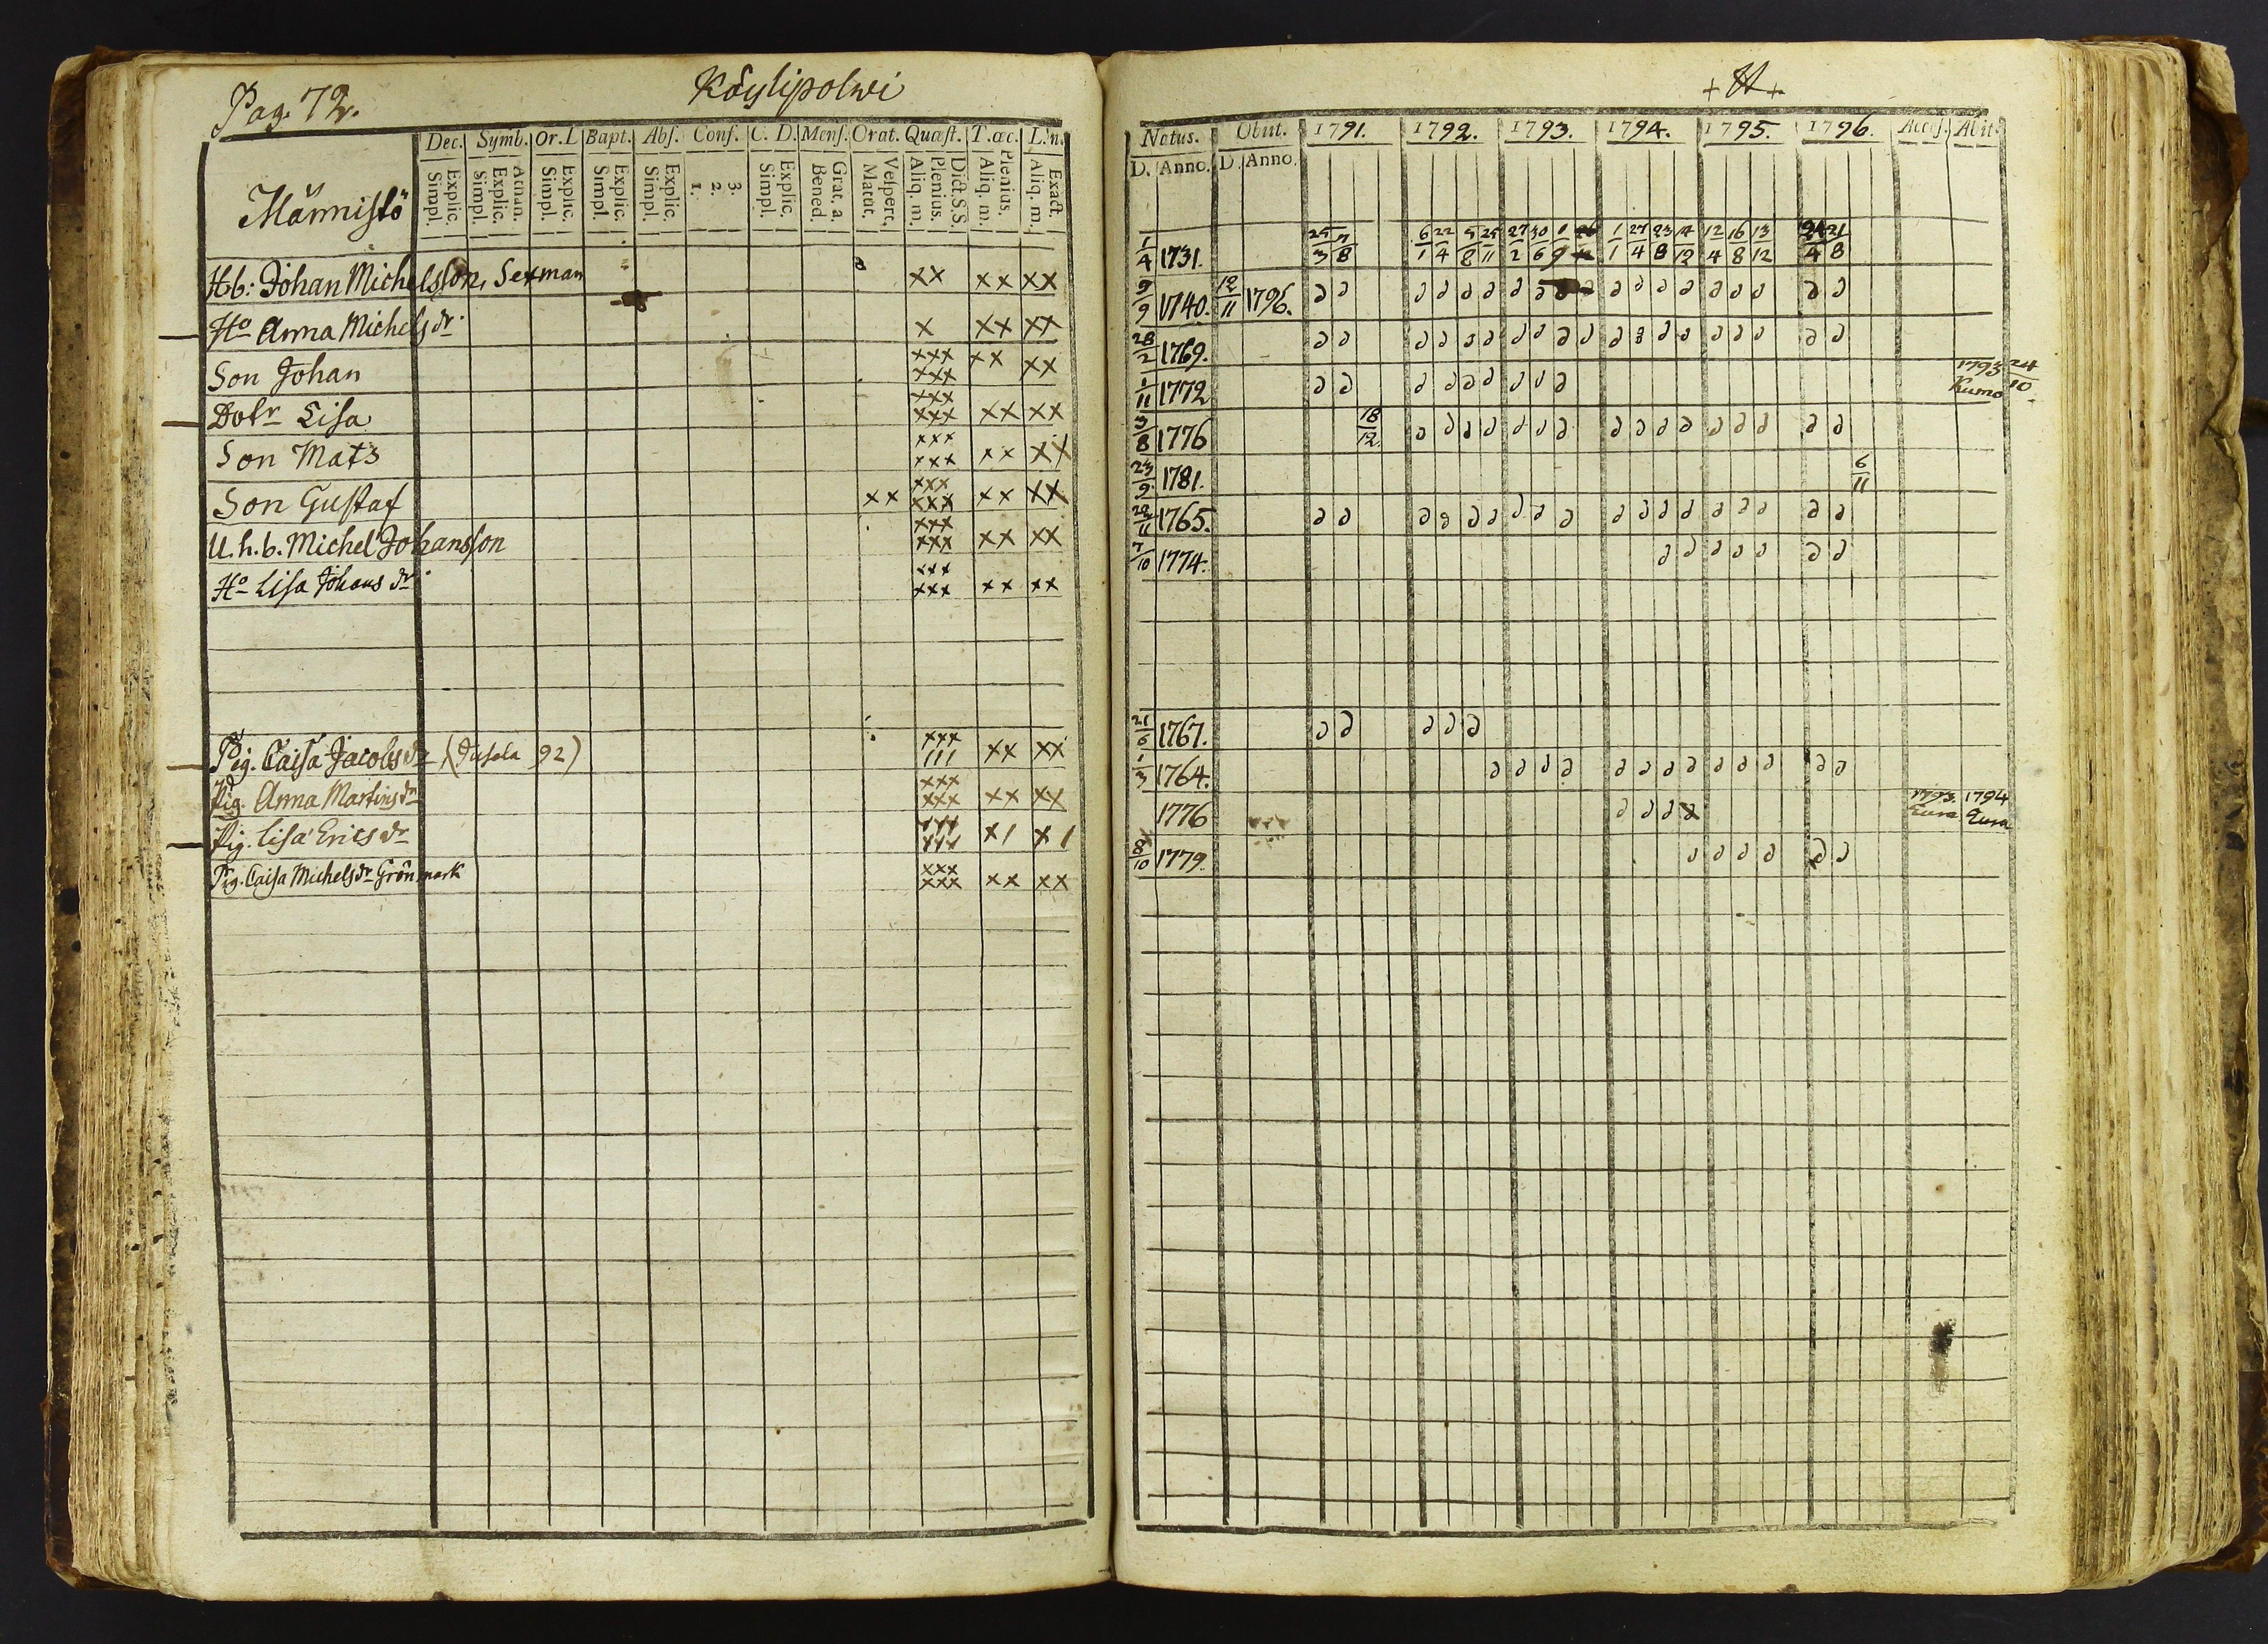 Pag. 72.
Köylipolwi
Dec. Symb. Or. L Bapt. Abs. Conf. C. D. Mens. Orat. Quæst. T. æc. L. n.
Explic. Simpl. Athan. Explic. Simpl. Explic. Simpl. Explic. Simpl. Explic. Simpl. 3. 2. 1. Explic. Simpl. Grat. a. Bened. Vespert. Matut. Dict. S. S. Plenius. Aliq. m. Plenius. Aliq. m. Exact. Aliq. m.
Männistö
Hb: Johan Michelsson, Sexman xx xx xx
Ho Anna Michelsdr x xx xx
Son Johan xxx xxx xx xx
Dotr Lisa xxx xxx xx xx
Son Mats xxx xxx xx xx
Son Gustaf xx xxx xxx xx xx
U. h. b. Michel Johansson xxx xxx xx xx
Ho Lisa Johans dr xxx xxx xx xx
Pig. Caisa Jacobsdr xxx 111 xx xx
Pig. Anna Martinsdr xxx xxx xx xx
Pig. Lisa Ericsdr x1 x1
Pig. Caisa Michelsdr Grönmark xxx xxx xx xx
Natus. Obiit. 1791. 1792. 1793. 1794. 1795. 1796. Access. Abit.
D. Anno. D. Anno.
1/4 1731. 25/3 7/8 6/1 22/4 5/8 25/11 27/2 30/6 1/9 1/1 27/4 23/8 14/12 12/4 16/8 13/12 24/4 21/8
9/9 1740. 12/11 1796.
28/2 1769.
1/11 1772 1793 24/10 Kumo
3/8 1776 18/12
23/9 1781. 6/11
22/11 1765.
7/10 1774.
21/6 1767.
1/3 1764.
1776 1793. Eura 1794 Eura
8/10 1779.